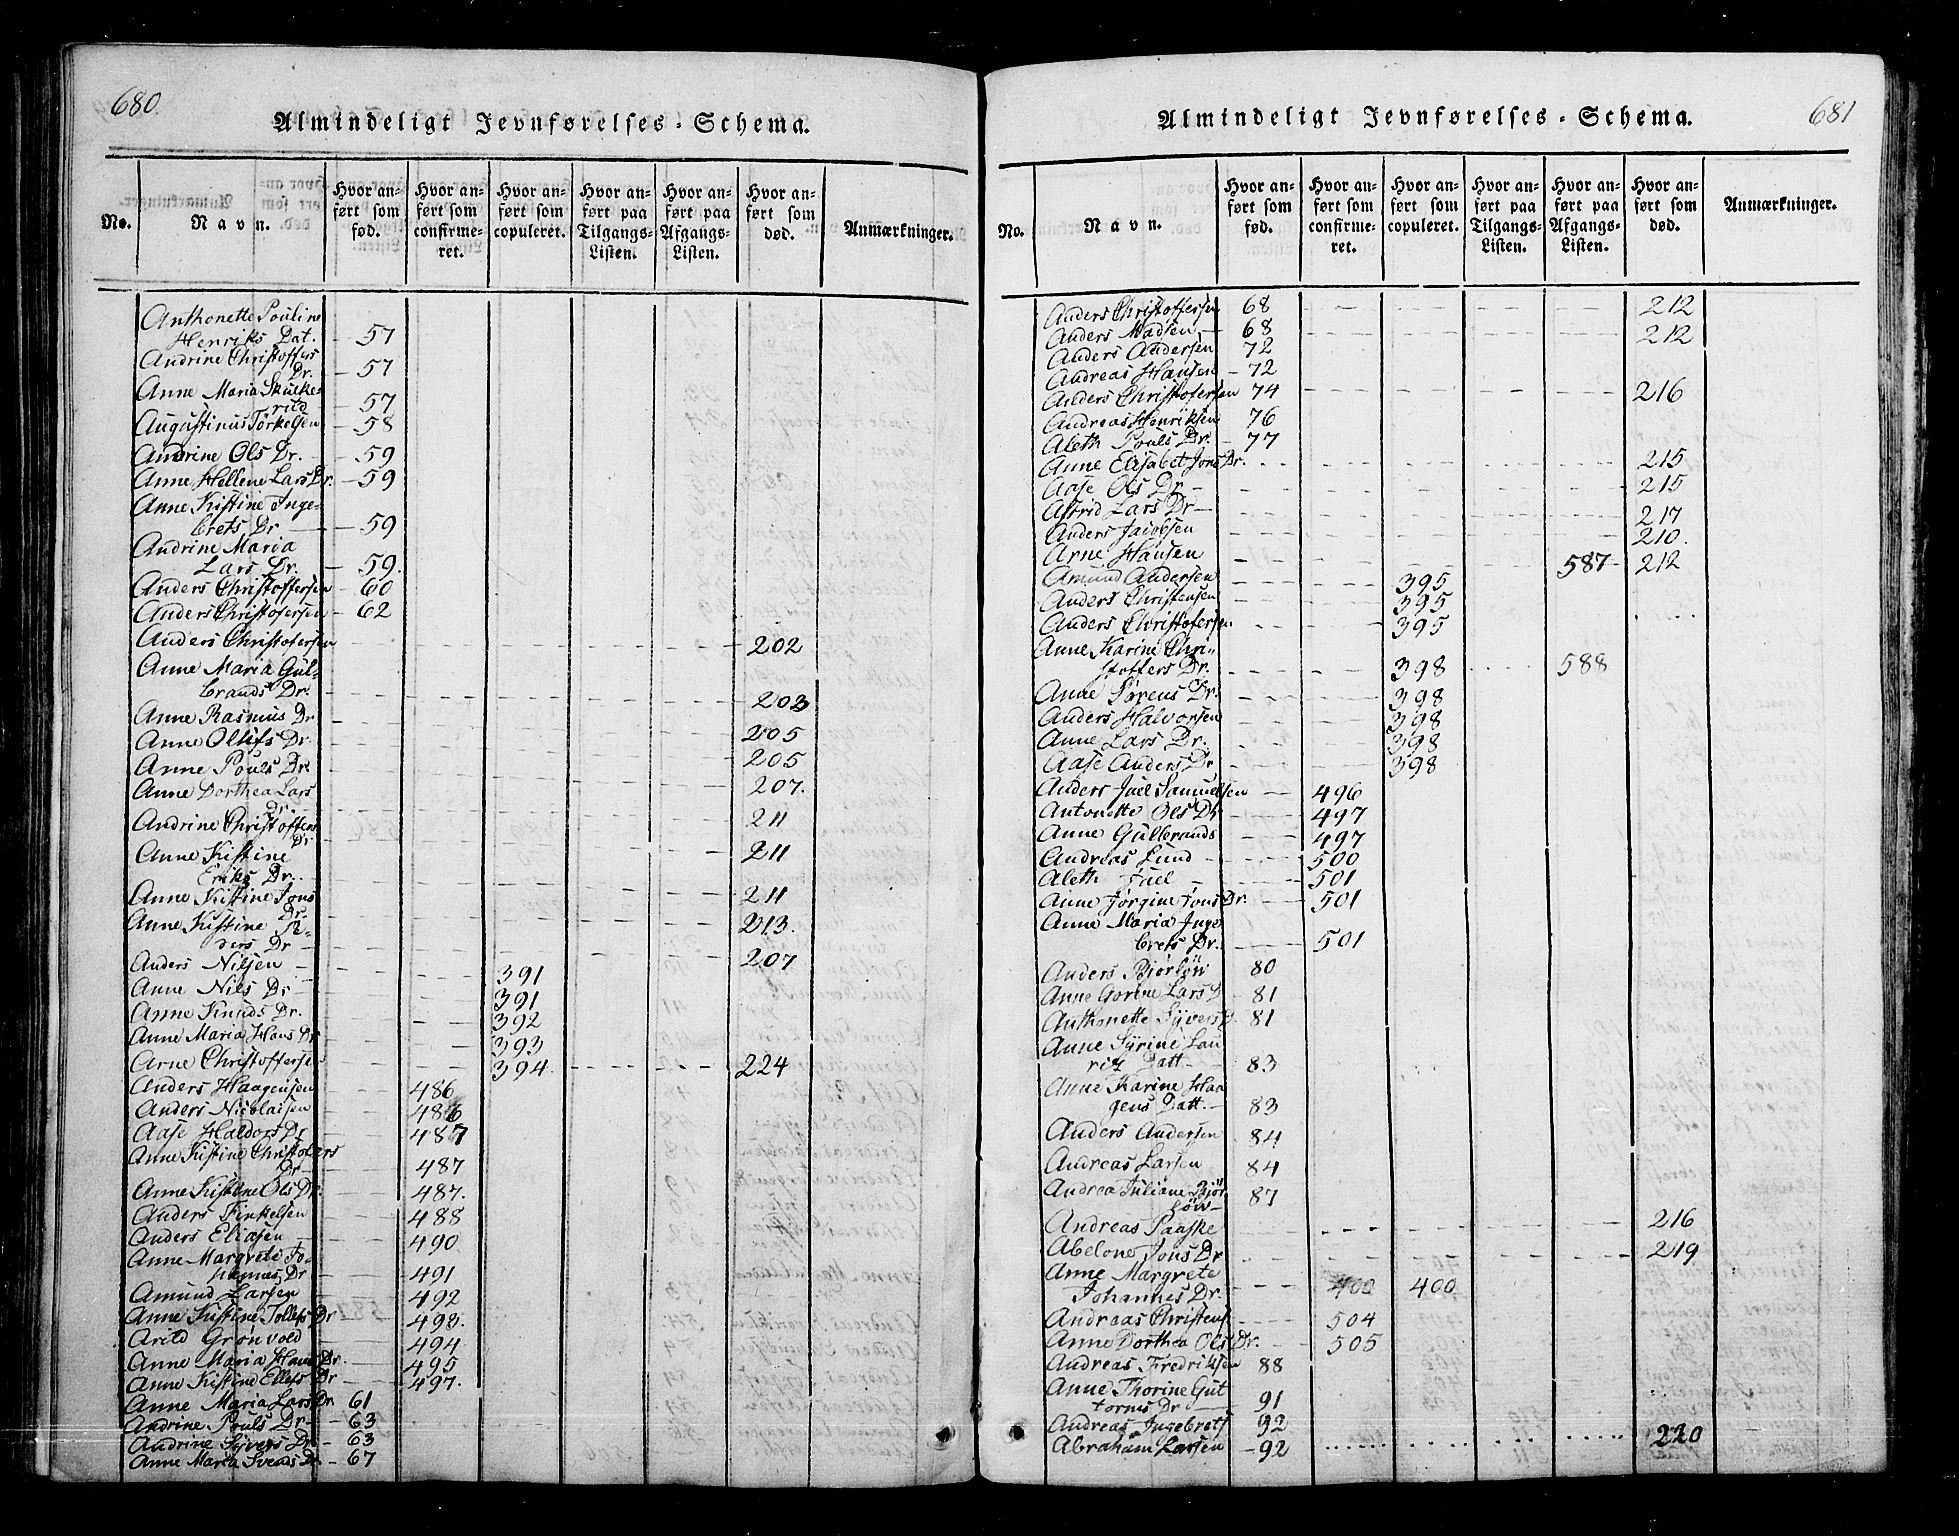 680.
Almindeligt Jevnførelses-Schema.
No.
Navn.
Hvor anført som fød.
Hvor anført som confirmeret.
Hvor anført som copuleret.
Hvor anført paa Tilgangs-Listen.
Hvor anført paa Afgangs-Listen.
Hvor anført som død.
Anmærkninger.
Anthonette Pouline
Henriks Dat. 57
Andrine Christoffers
Dr. 57
Anne Maria Skulke-
57
Augustinus Torkelsen 58
Andrine Ols Dr. 59
Anne Hellene Lars Dr. 59
Anne Kistine Inge-
brets Dr 59
Andrine Maria
Lars Dr. 59.
Anders Christoffersen 60
Anders Christofersen 62
Anders Christofersen 202
Anne Maria Gul-
brands Dr. 203
Anne Rasmus Dr 205
Anne Ollefs Dr. 205
Anne Pouls Dr. 207.
Anne Dorthea Lars
Dr. 211
Andrine Christoffers
Dr 211
Anne Kistine
Eriks Dr. 211
Anne Kistine Jons
Dr. 213.
Anne Kistine Pe-
ders Dr 207
Anders Nilsen 391
Anne Nils Dr 391
Anne Knuds Dr. 392
Anne Maria Hans Dr 393
Arne Christoffersen 394 224
Anders Haagensen 486
Anders Nicolaisen 486
Aase Haldors Dr 487
Anne Kistine Christofers
Dr 487
Anne Kistine Ols Dr. 487.
Anders Finkelsen 488
Anders Eliasen 490
Anne Margrete Jo-
hannes Dr 491
Amund Larsen 492
Anne Kistine Tollefs Dr 493.
Arild Grønvold 494
Anne Maria Hans Dr. 495
Anne Kistine Ellefs Dr 497.
Anne Maria Lars Dr 61
Andrine Pouls Dr 63
Andrine Syvers Dr 63
Anne Maria Svends Dr 67
681
Almindeligt Jevnførelses-Schema.
No.
Navn.
Hvor anført som fød.
Hvor anført som confirmeret.
Hvor anført som copuleret.
Hvor anført paa Tilgangs-Listen.
Hvor anført paa Afgangs-Listen.
Hvor anført som død.
Anmærkninger.
Anders Christoffersen 68 212
Anders Madsen 68 212
Anders Andersen 72
Andreas Hansen 72
Anders Christofersen 74 216
Andreas Henriksen 76
Aleth Pouls Dr. 77
Anne Elisabet Jons Dr. 215
Aase Ols Dr 215
Astrid Lars Dr 217
Anders Jacobsen 210.
Arne Hansen 587 212
Amund Andersen 395
Anders Christensen 395
Anders Christofersen 395
Anne Karine Chri-
stoffers Dr. 398 588
Anne Sørens Dr. 398
Anders Halvorsen 398
Anne Lars Dr. 398
Aase Anders Dr 398
Anders Juel Samuelsen 496
Antonette Ols Dr 497
Anne Gulbrands 497
Andreas Lund 500
Aleth Juel 501
Anne Jørgine Jons Dr. 501
Anne Maria Inge
brets Dr. 501
Anders Bjørløw 80
Anne Gorine Lars D 81
Anthonette Syvers D. 81
Anne Syrine Lau
ritz Datt 83
Anne Karine Haa
gens Datt. 83
Anders Andersen 84
Andreas Larsen 84
Andrea Juliane Bjør
løw 87
Andreas Paaske 216
Abelone Jons Dr 219
Anne Margrete
Johannes Dr. 400 400
Andreas Christens 504
Anne Dorthea Ols Dr. 505
Andreas Fredriksen 88
Anne Thorine Gut
torms Dr 91
Andreas Ingebrets 92
Abraham Larsen 92 220